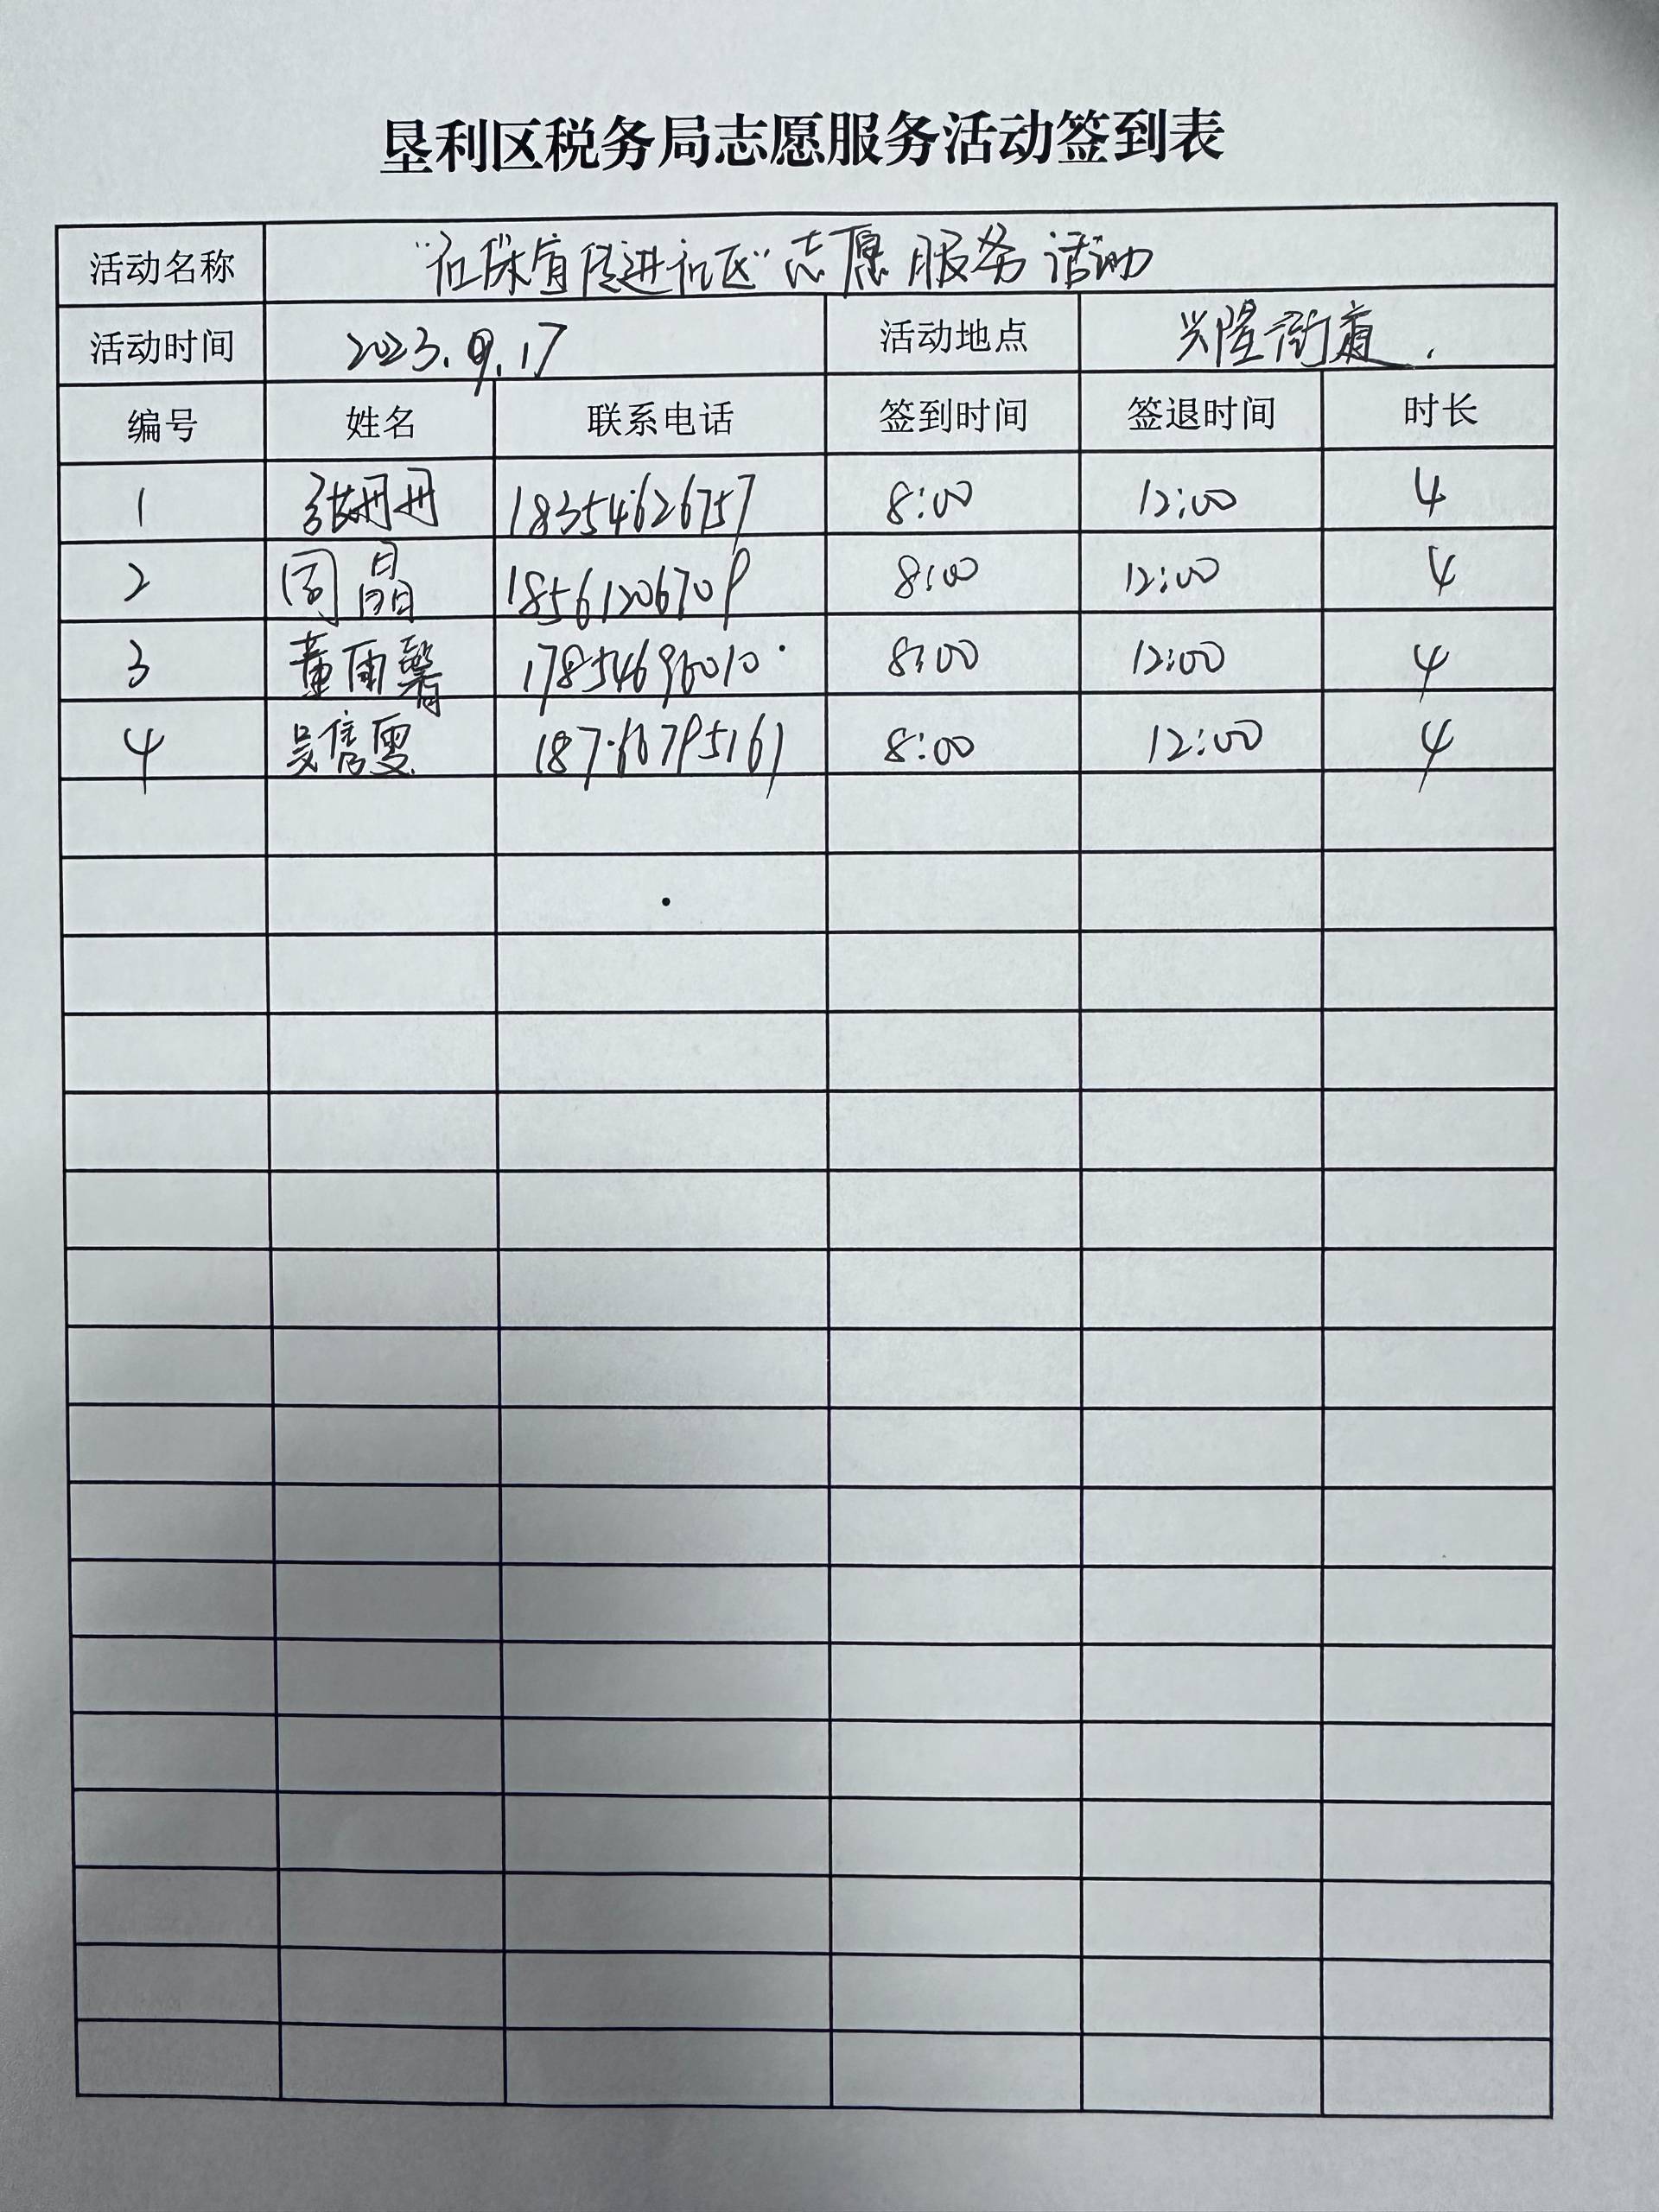 垦利区税务局志愿服务活动签到表
活动名称 “社保宣传进社区”志愿服务活动
活动时间 2023.9.17 活动地点 兴隆街道.
编号 姓名 联系电话 签到时间 签退时间 时长
1 张冉冉 18354626757 8:00 12:00 4
2 周晶 18561206709 8:00 12:00 4
3 董雨馨 17854696010 8:00 12:00 4
4 吴信雯 8:00 12:00 4